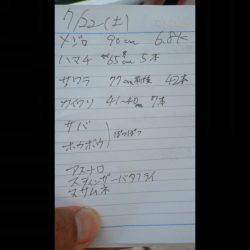 7/22 (土)
メジロ 90cm 6.8k
ハマチ 65cm 5本
サワラ 77cm 42本
41~40cm 7本
サバ
ホウボウ ぽつぽつ
アストロ
スティンガーバタフライ
スサム ネ